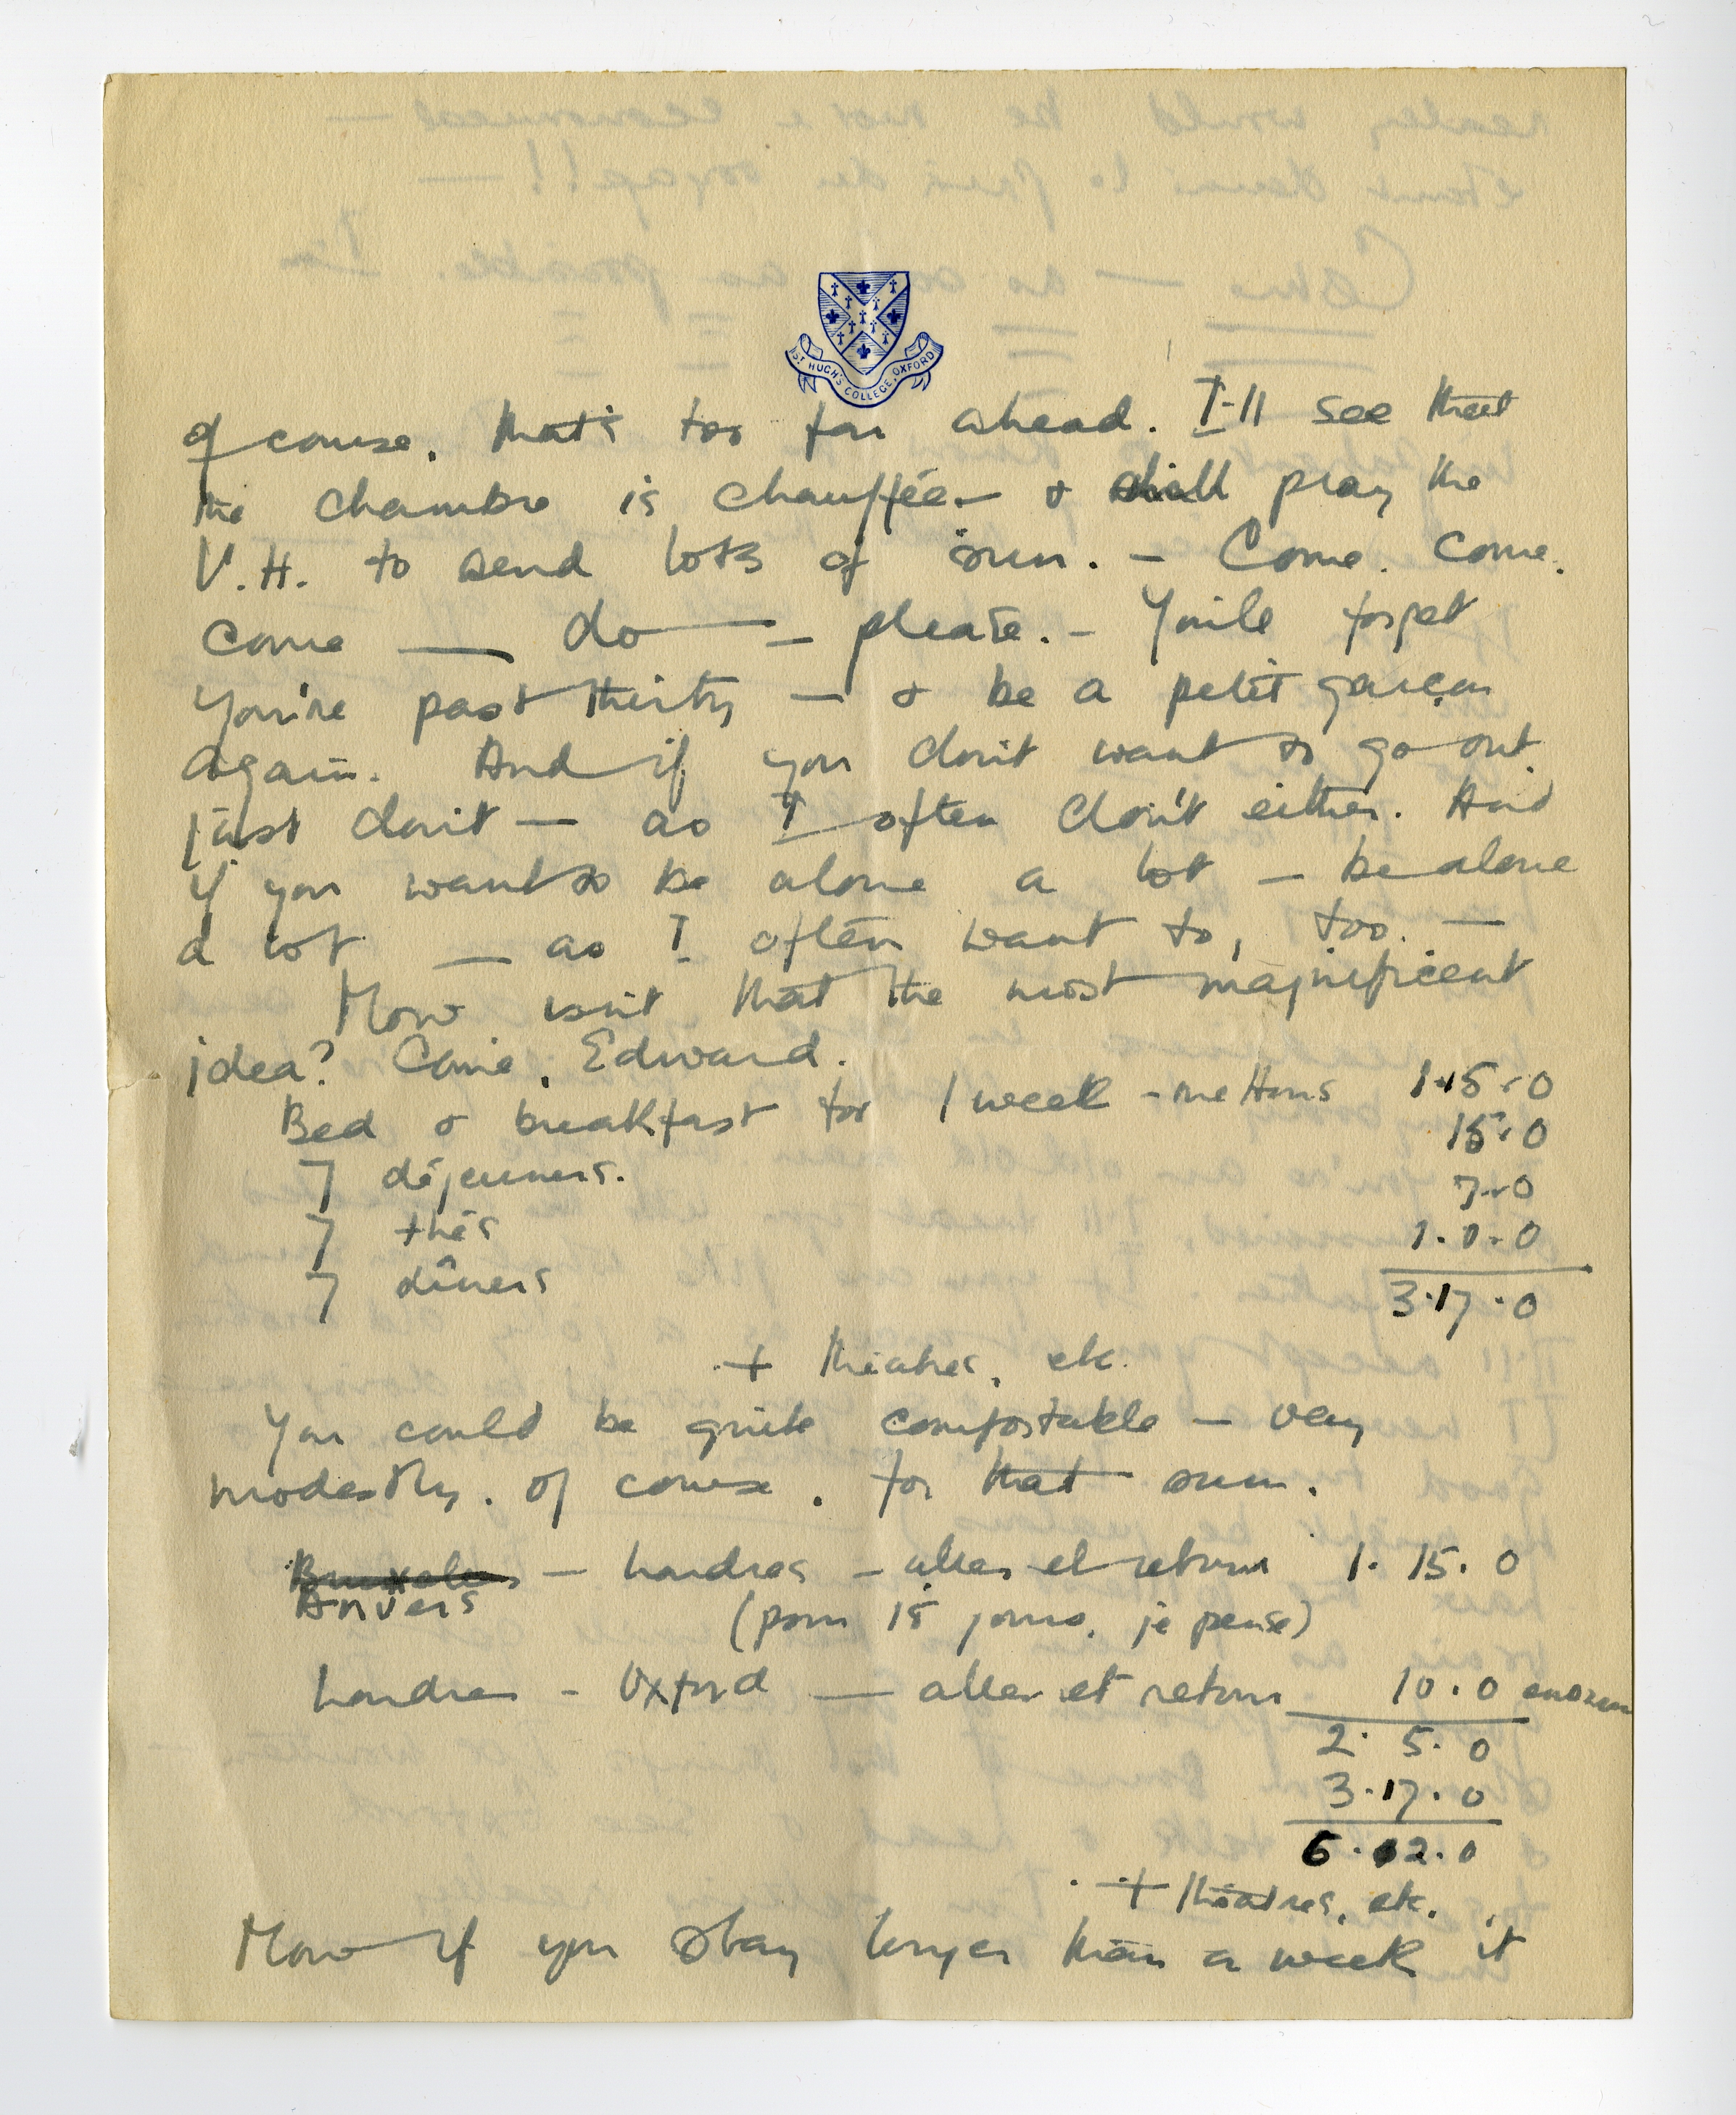 ST HUGH'S COLLEGE, OXFORD
of course, that's too far ahead. I'll see that
the chambre is chauffée — & shall pray the
V.H. to send lots of sun. — Come. Come.
Come — do — please. — You'll forget
you're past thirty — & be a petit garçon
again. And if you don't want to go out,
just don't — as I often don't either. And
if you want to be alone a lot — be alone
a lot — as I often want to, too. —
Now isn't that the most magnificent
idea? Come, Edward.
Bed & breakfast for 1 week - mettons 1.15.0
7 déjeuners. 15.0
7 thés 7.0
7 dîners 1.0.0
3.17.0
+ théatres, etc.
You could be quite comfortable — very
modestly, of course, for that sum.
Bruxelles — Londres — aller et retour 1.15.0
Anvers (pour 15 jours, je pense)
Londres - Oxford — aller et retour 10.0 environ
2.5.0
3.17.0
6.02.0
+ théatres, etc.
Now if you stay longer than a week it